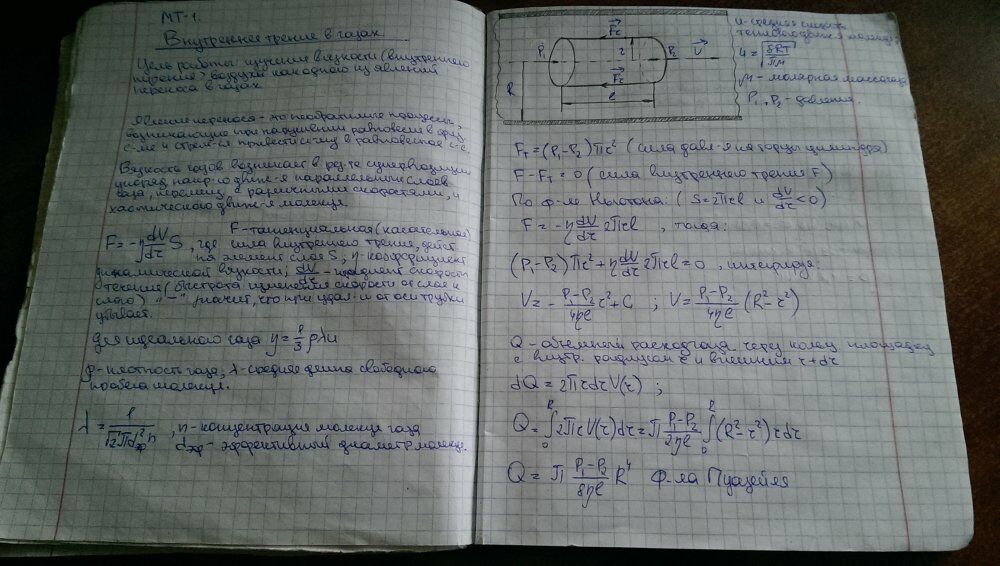 МТ-1.
Внутреннее трение в газах
Цель работы: изучения вязкости (внутреннего
трения) воздуха как одного из явлений
переноса в газах.
Явление переноса - это необратимые процессы,
возникающие при нарушении равновесия в физич.
с-ме и стрем-ся привести с-му в равновесное с-е.
Вязкость газов возникает в рез-те
упоряд. напр-го движ-я параллельных слоев
газа, перемещ. с различными скоростями, и
хаотического движ-я молекул.
F = -η dV/dr S, где F - тангенциальная (касательная)
сила внутреннего трения, действ.
на элемент слоя S; η - коэффициент
динамической вязкости; dV/dr - градиент скорости
течения (быстрота изменения скорости от слоя к
слою) "-" значит, что при удал-и от оси трубки
убывает.
для идеального газа η = 1/3 ρλu
ρ - плотность газа, λ - средняя длина свободного
пробега молекул.
λ = 1/(√2 π d²эф n), n - концентрация молекул газа
dэф - эффективный диаметр молекул.
Fτ
P₁ r P₂ V
R Fτ
l
u - средняя скорость
теплового движения молекул
u = √(8RT/πM)
M - молярная масса газа
P₁, P₂ - давления.
Fт = (P₁-P₂)πr² (сила давл-я на торцы цилиндра)
F - Fт = 0 (сила внутреннего трения F)
По ф-ле Ньютона: (S = 2πrl и dV/dr < 0)
F = -η dV/dr 2πrl, тогда:
(P₁-P₂)πr² + η dV/dr 2πrl = 0, интегрируя:
V = - (P₁-P₂)/4ηl r² + C ; V = (P₁-P₂)/4ηl (R² - r²)
Q - объемный расход газа через кольц. площадку
с внутр. радиусом r и внешним r+dr
dQ = 2πrdrV(r) ;
Q = ∫₀ᴿ 2πrV(r)dr = π (P₁-P₂)/2ηl ∫₀ᴿ (R²-r²) rdr
Q = π (P₁-P₂)/8ηl R⁴ ф-ла Пуазейля